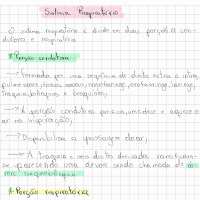 Sistema Respiratório
O sistema respiratório é dividido em duas porções a condutora e respiratória
* Porção condutora
→ Formada por uma sequência de dutos extra e intrapulmonares: fossas nasais, nasofaringe, orofaringe, laringe, traqueia, brônquios e bronquíolos;
→ A porção condutora purifica, umedece e aquece o ar na inspiração;
→ Disponibiliza a passagem do ar;
→ A traqueia e seus dutos derivados ramificam-se parecendo uma árvore sendo chamada de
* Porção respiratória